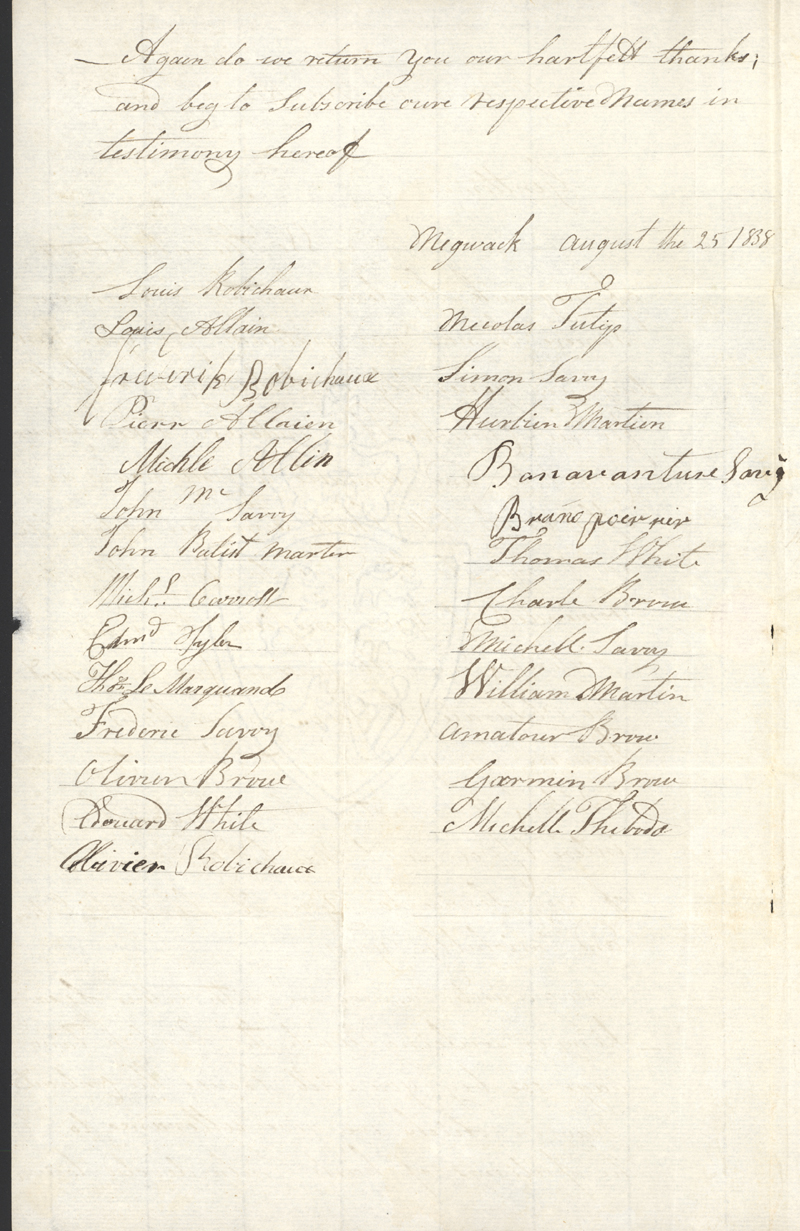 Again do we return you our hartfelt thanks;
and beg to Subscribe oure respective Names in
testimony hereof
Negwack august the 25 1838
Louis Robichaux
Louis Allain
Frederik Robichaux
Pierr Allaien
Michle Allin
John Mc Savoy
John Batist Marten
Michl. Carroll
Edmd Tyler
Thos Le Marquand
Frederic Savoy
Olivien Broue
Edouard White
Olivier Robichaux
Nicolas
Simon Savoy
Martien
Banavanture Savoy
poirrier
Thomas White
Charle Broue
Michell Savoy
William Martin
Amatour Brow
Garmin Brow
Michell Thibodo